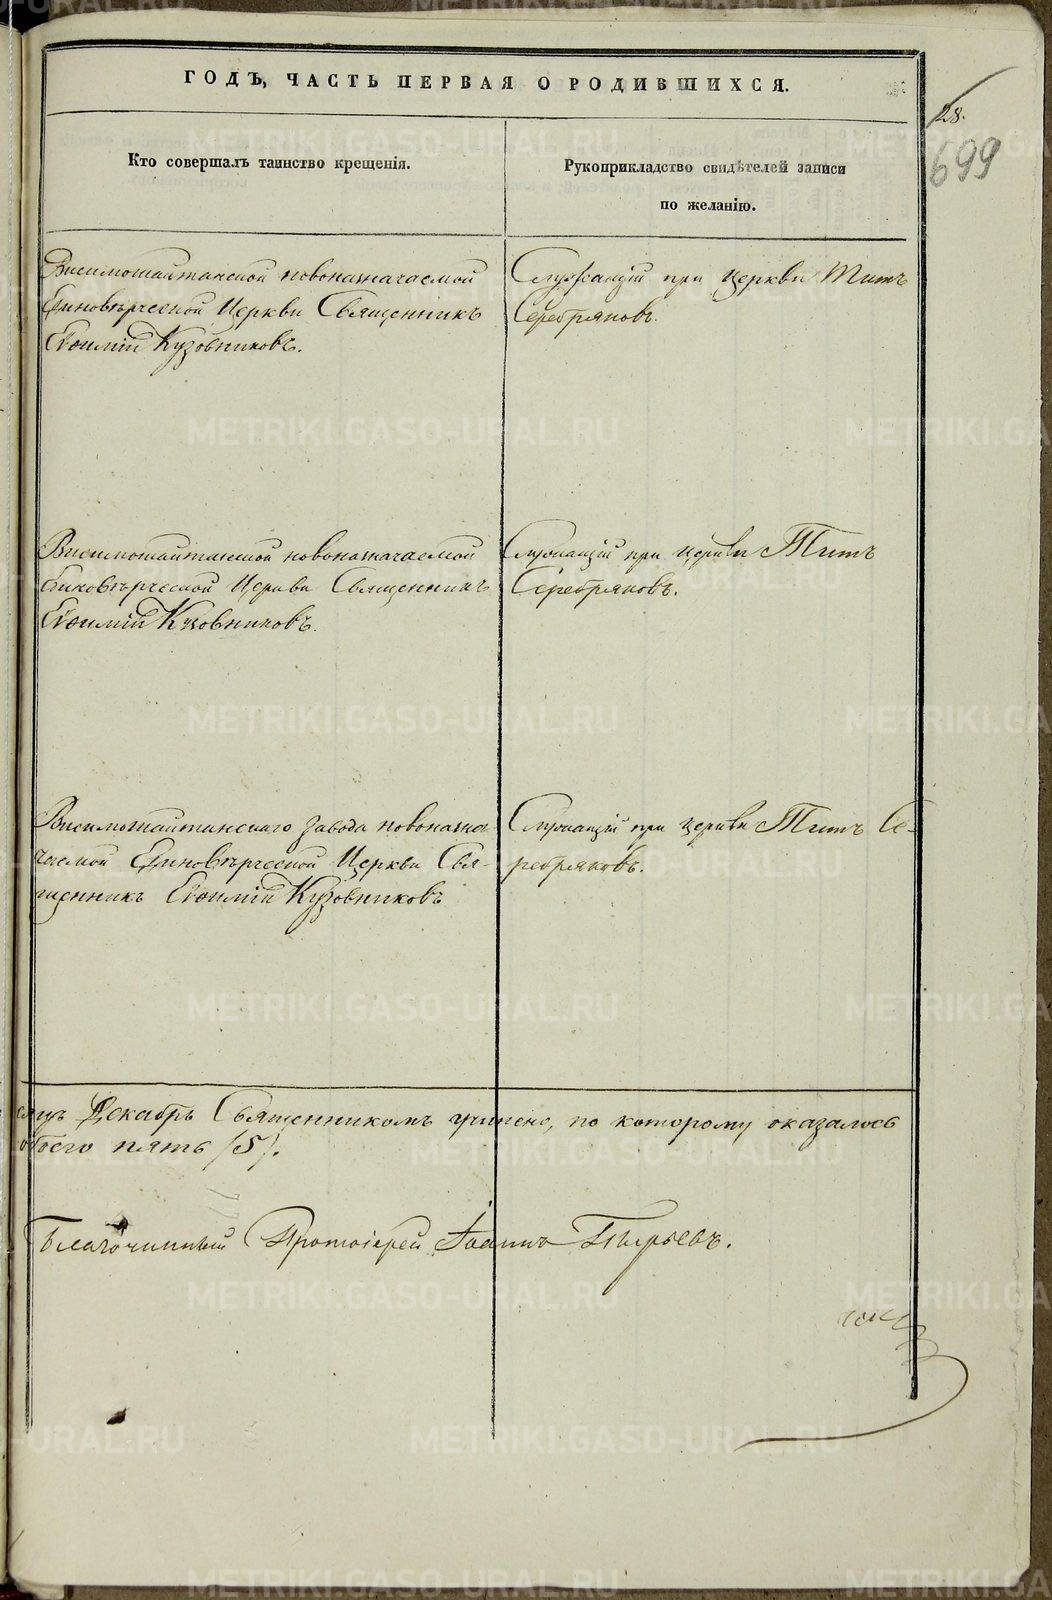 ГОДЪ, ЧАСТЬ ПЕРВАЯ О РОДИВШИХСЯ.
28.
699
Кто совершалъ таинство крещенія.
Рукоприкладство свидѣтелей записи
по желанію.
Висимошайтанской новоназначаемой
Единовѣрческой Церкви Священникъ
Евѳимій Кузовниковъ.
Служащій при церкви Титъ
Серебряковъ.
Висимошайтанской новоназначаемой
Единовѣрческой Церкви Священникъ
Евѳимій Кузовниковъ.
Служащій при церкви Титъ
Серебряковъ.
Висимошайтанскаго завода новоназна-
чаемой Единовѣрческой Церкви Свя-
щенникъ Евѳимій Кузовниковъ
Служащій при церкви Титъ Се-
ребряковъ.
Декабрь Священникомъ учинено, по которому оказалось
обоего пять (5).
Благочинный Протоіерей Іоаннъ
METRIKI.GASO-URAL.RU